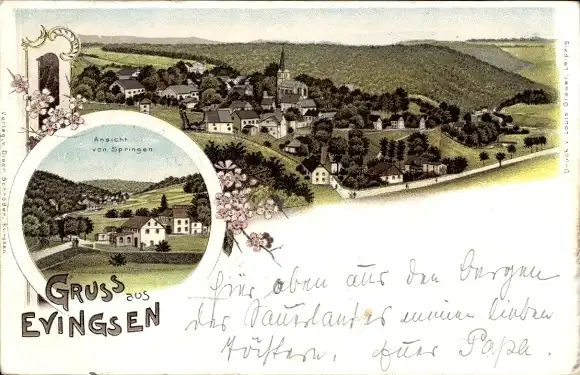 Ansicht
von Springen.
GRUSS aus
EVINGSEN
Hier oben aus den Bergen
des Sauerlandes meinen lieben
Töchtern. Euer Papa.
Druck v. Louis Glaser, Leipzig
Verlag v. Diedr. Schröder,